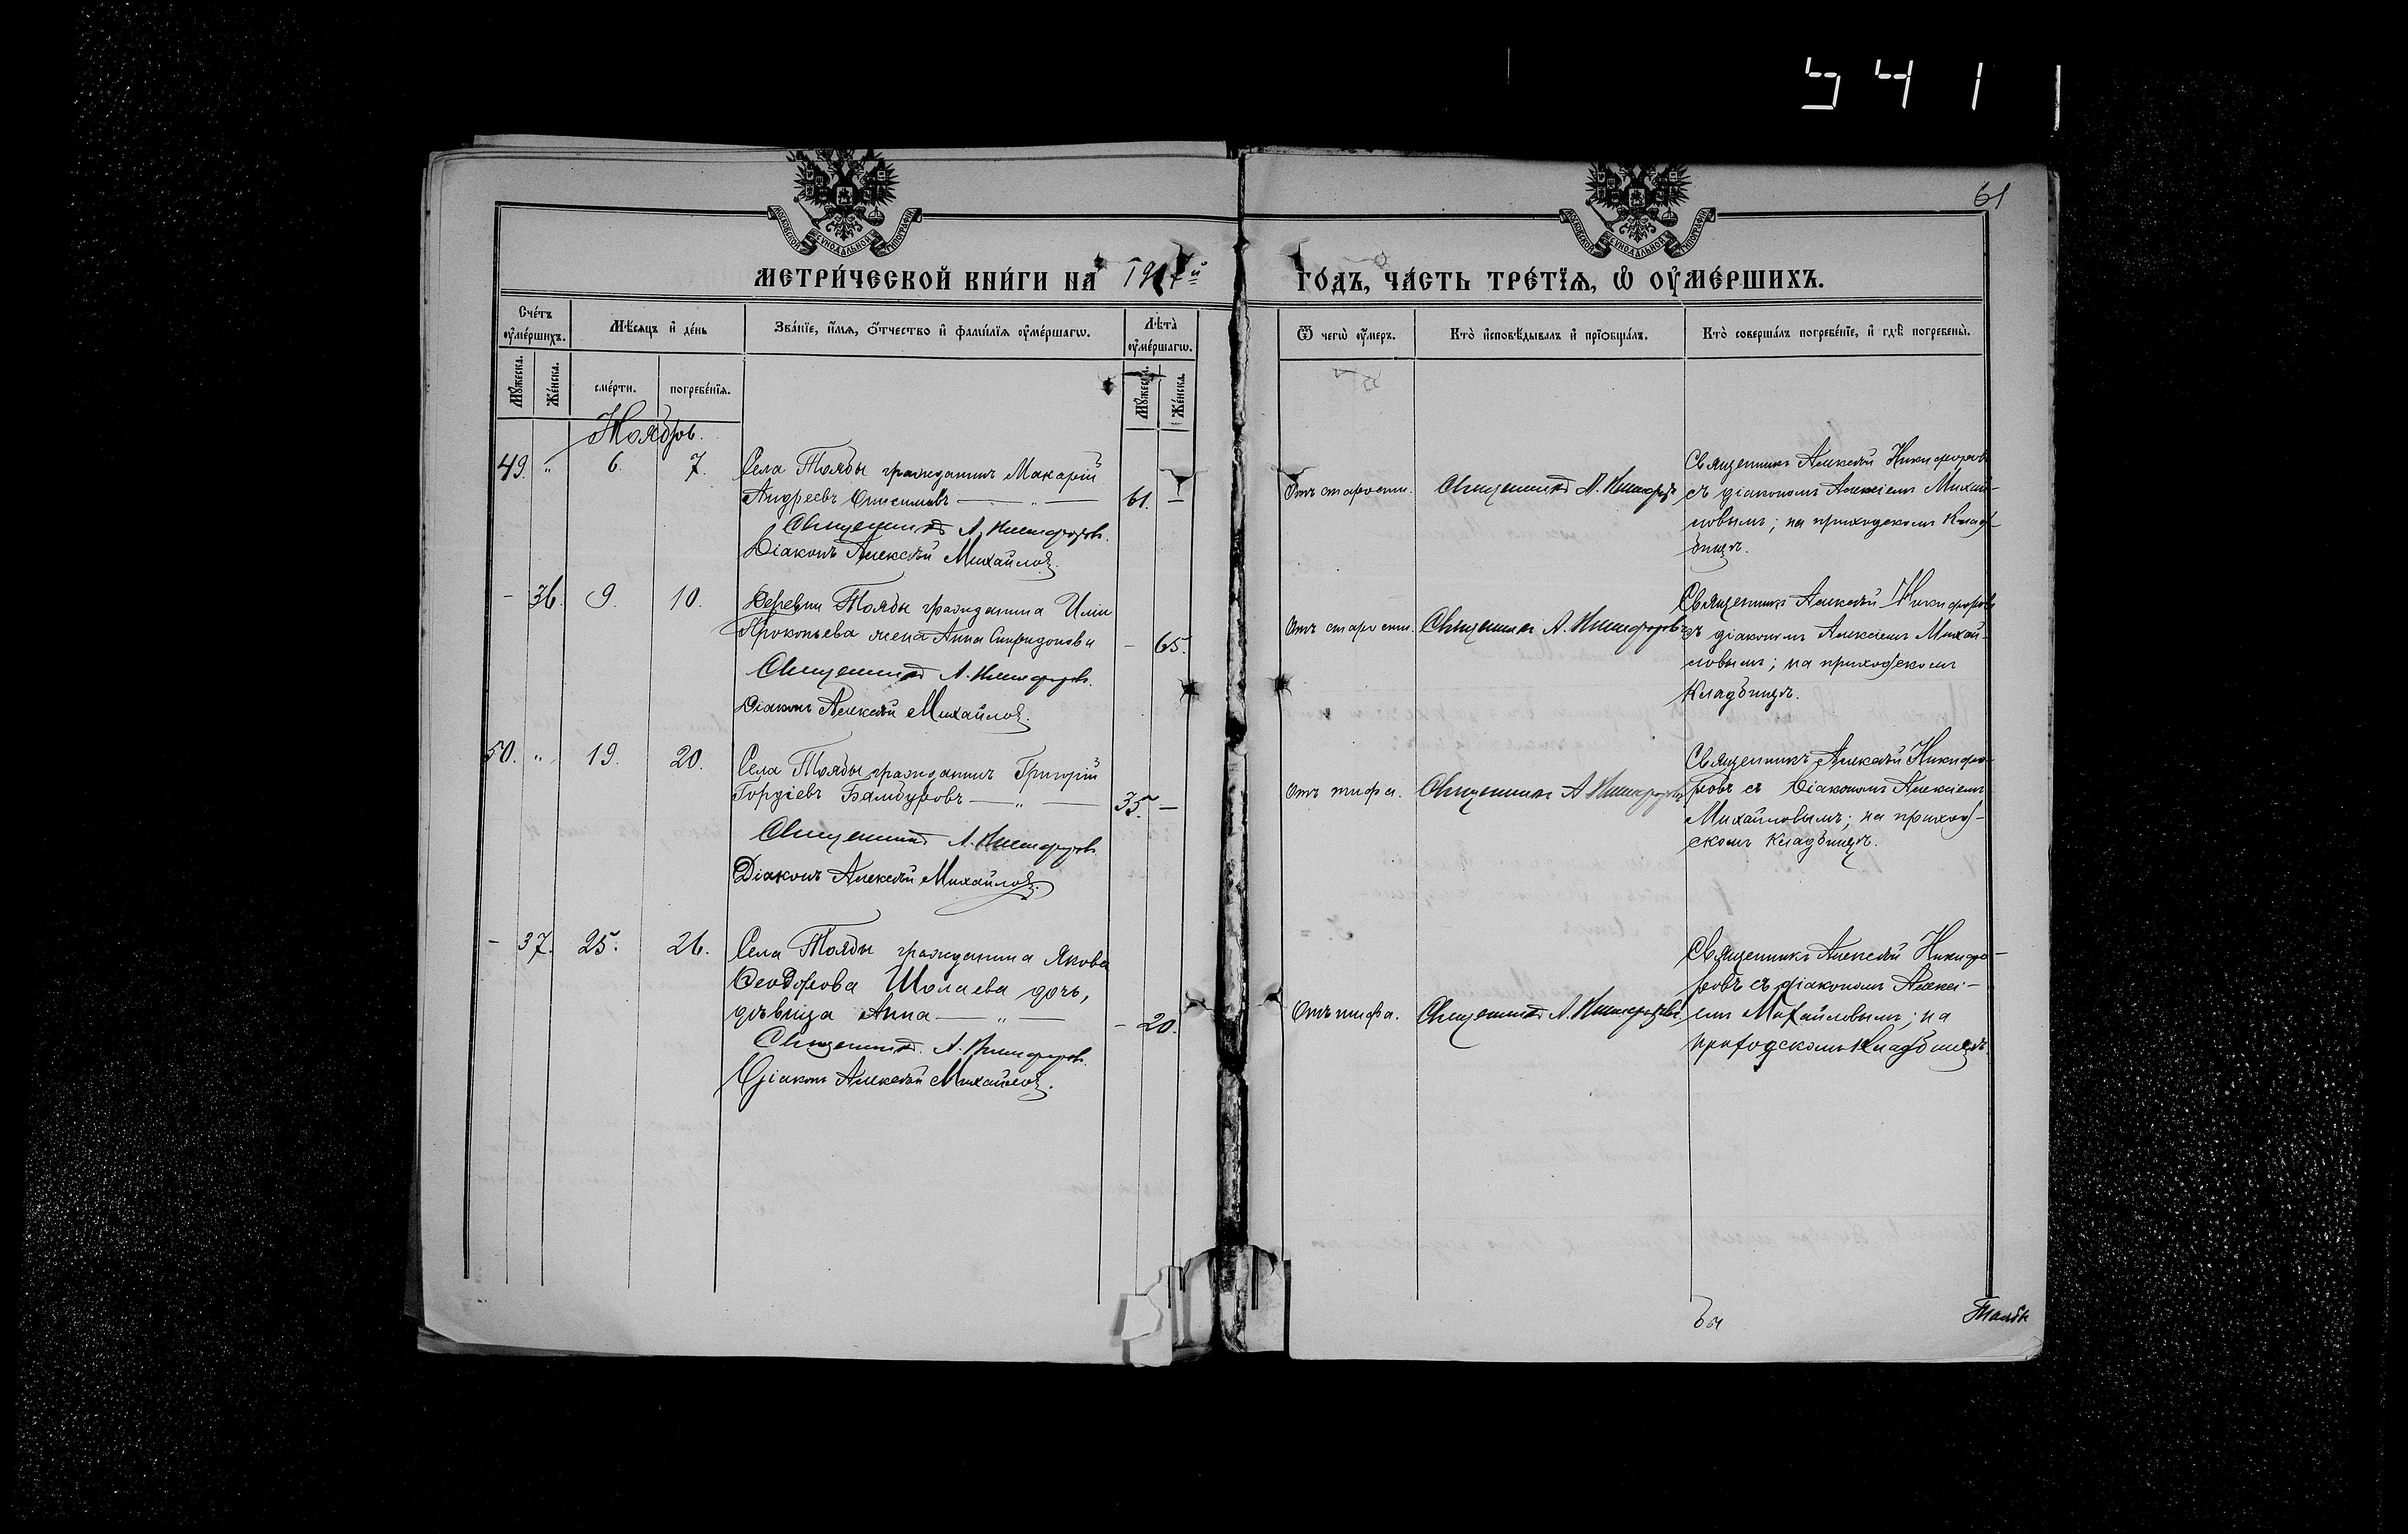 5411
61
МОСКОВСКОЙ СѴНОДАЛЬНОЙ ТИПОГРАФІИ
МОСКОВСКОЙ СѴНОДАЛЬНОЙ ТИПОГРАФІИ
МЕТРИ́ЧЕСКОЙ КНИ́ГИ НА 1917й ГО́ДЪ, ЧА́СТЬ ТРЕ́ТЇѦ, Ѡ ОУ҆МЕ́РШИХЪ.
Сче́тъ оу҆ме́ршихъ.
Мѣ́сяцъ и҆ де́нь
Зва́нїе, и҆́мя, ѻ҆́тчество и҆ фами́лїя оу҆ме́ршагѡ.
Лѣ́та оу҆ме́ршагѡ.
Ѿ чегѡ̀ оу҆́меръ.
Кто̀ и҆сповѣ́дывалъ и҆ прїѻбща́лъ.
Кто̀ соверша́лъ погребе́нїе, и҆ гдѣ̀ погребены̀.
Мꙋ́жеска. Же́нска. сме́рти. погребе́нїя. Мꙋ́жеска. Же́нска.
Ноябрь.
49. „ 6. 7. Села Тоябы гражданинъ Макарій
Андреевъ Онисимовъ — „ — 61. —
Священникъ А. Никифоровъ.
Діаконъ Алексѣй Михайловъ.
Отъ старости. Священникъ А. Никифоровъ
Священникъ Алексѣй Никифоровъ
съ діакономъ Алексіемъ Михай-
ловымъ; на приходскомъ клад-
бищѣ.
- 36. 9. 10. Деревни Тоябы гражданина Иліи
Прокопьева жена Анна Спиридонова - 65.
Священникъ А. Никифоровъ.
Діаконъ Алексѣй Михайловъ.
Отъ старости. Священникъ А. Никифоровъ
Священникъ Алексѣй Никифоровъ
съ діакономъ Алексіемъ Михай-
ловымъ; на приходскомъ
кладбищѣ.
50. „ 19. 20. Села Тоябы гражданинъ Григорій
Гордіевъ Бамбуровъ — „ — 35. —
Священникъ А. Никифоровъ
Діаконъ Алексѣй Михайловъ.
Отъ тифа. Священникъ А Никифоровъ
Священникъ Алексѣй Никифо-
ровъ съ Діакономъ Алексіемъ
Михайловымъ; на приход-
скомъ кладбищѣ.
- 37. 25. 26. Села Тоябы гражданина Якова
Ѳеодорова Шолаева дочь,
дѣвица Анна — „ — - 20.
Священникъ А. Никифоровъ.
Діаконъ Алексѣй Михайловъ.
Отъ тифа. Священникъ А. Никифоровъ
Священникъ Алексѣй Никифо-
ровъ съ діакономъ Алексі-
емъ Михайловымъ; на
приходскомъ кладбищѣ.
Тоябы